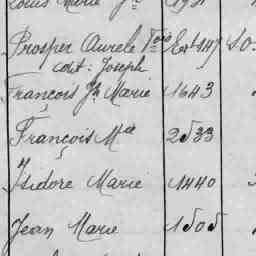 Louis Marie Jh 1931
Prosper Aurele Fois Ext 1147 S.O.
cout: Joseph
François Jh Marie 1643
François Mie 2533
Isidore Marie 1440
Jean Marie 1505